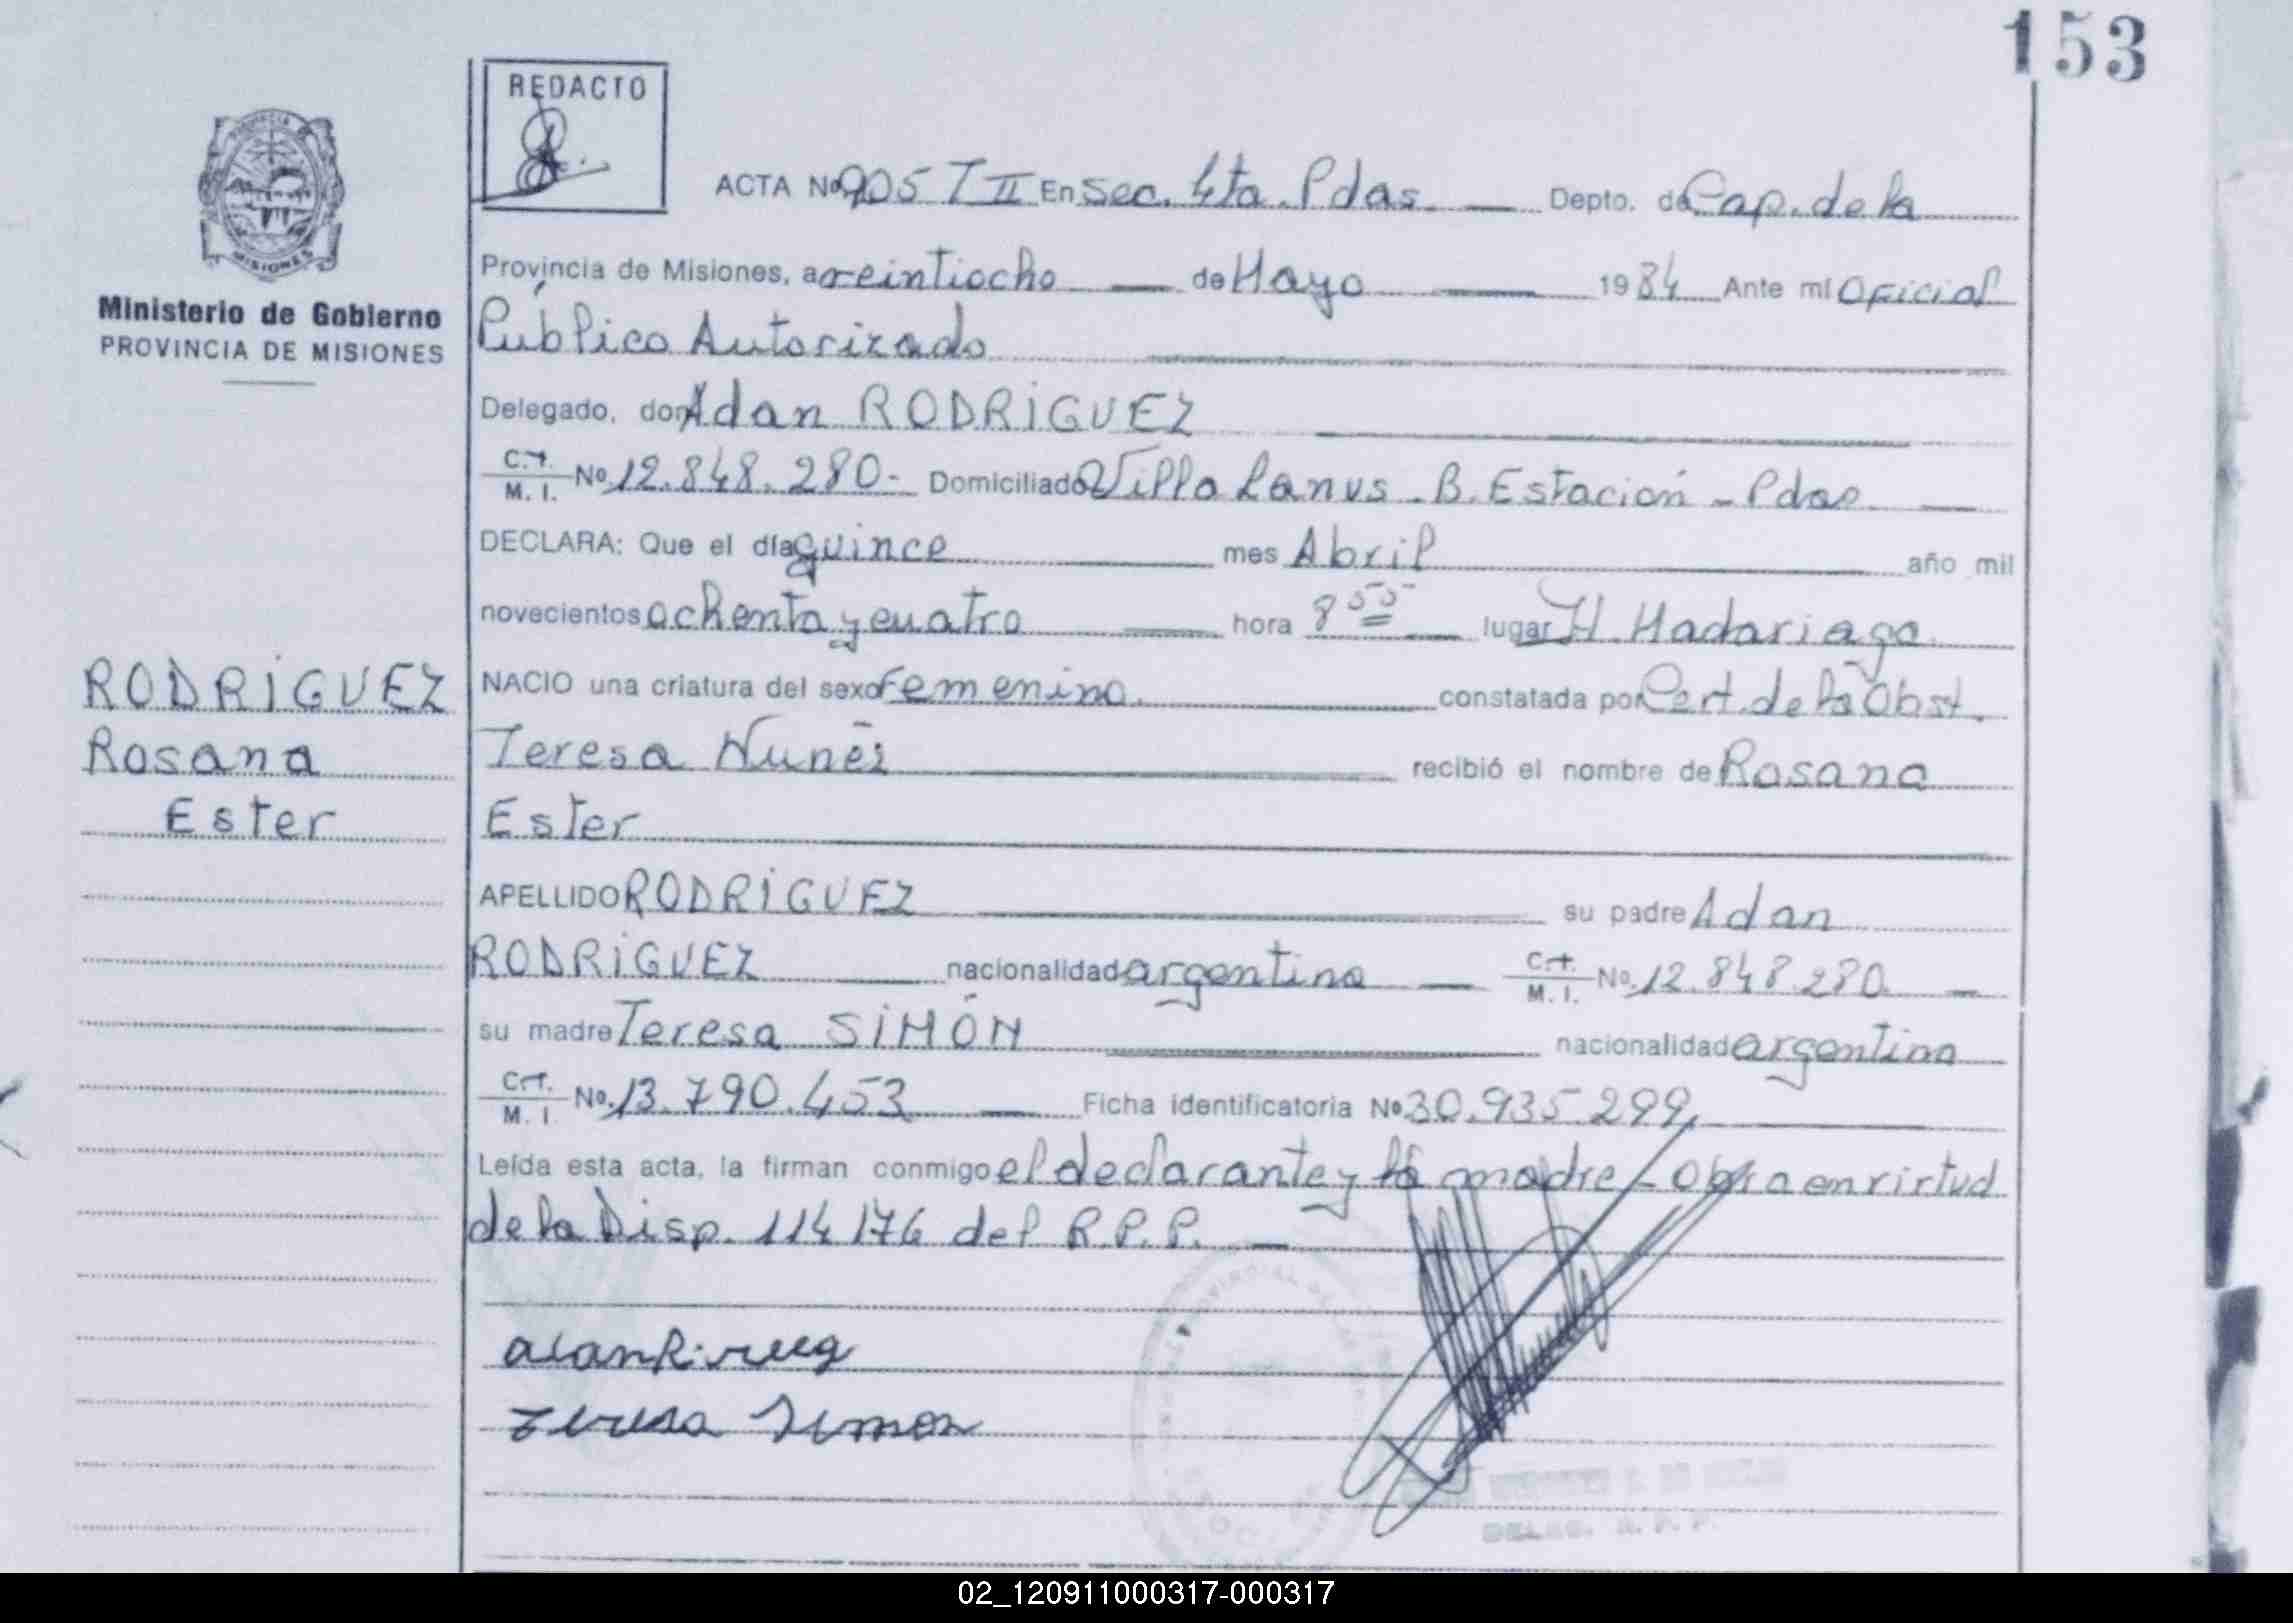 153
REDACTO
ACTA Nº 905 T II En Sec. 4ta. Pdas. Depto. de Cap. de la
Ministerio de Gobierno
PROVINCIA DE MISIONES
Provincia de Misiones, a veintiocho de Mayo 1984 Ante mí Oficial
Público Autorizado
Delegado, don Adan RODRIGUEZ
C.I.
M. I. Nº 12.848.280- Domiciliado Villa Lanus - B. Estación - Pdas
DECLARA: Que el día quince mes Abril año mil
novecientos ochenta y cuatro hora 8 55 lugar H. Madariaga
RODRIGUEZ
Rosana
Ester
NACIO una criatura del sexo femenino. constatada por Cert. de la Obst.
Teresa Nuñez recibió el nombre de Rosana
Ester
APELLIDO RODRIGUEZ su padre Adan
RODRIGUEZ nacionalidad argentina C.I. M. I. Nº 12.848.280
su madre Teresa SIMÓN nacionalidad argentina
C.I.
M. I. Nº 13.790.453 Ficha identificatoria Nº 30.935.299
Leída esta acta, la firman conmigo el declarante y la madre - Obra en virtud
de la Disp. 114/76 del R.P.P.
Teresa Simon
DELEG. R. P. P.
02_120911000317-000317